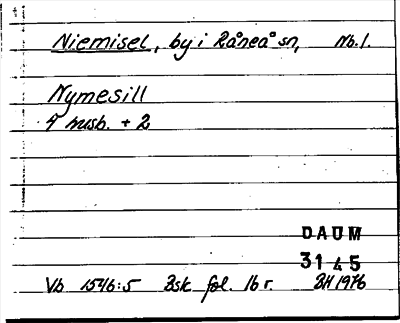 Niemisel, by i Råneå sn, Nb.l.
Nymesill
4 husb. + 2
DAUM
3145
Vb 1546:5 Bsk fol. 16 r. BH 1976